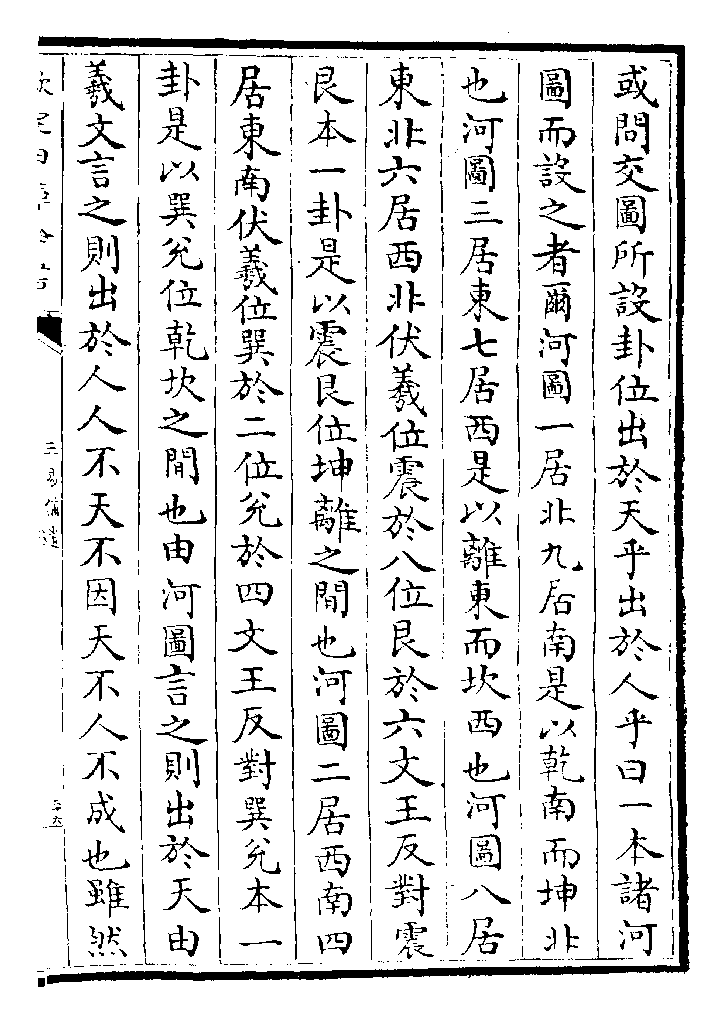 或問交圖所設卦位出於天乎出於人乎曰一本諸河
圖而設之者爾河圖一居北九居南是以乾南而坤北
也河圖三居東七居西是以離東而坎西也河圖八居
東北六居西北伏羲位震於八位艮於六文王反對震
艮本一卦是以震艮位坤離之間也河圖二居西南四
居東南伏羲位巽於二位兊於四文王反對巽兊本一
卦是以巽兊位乾坎之間也由河圖言之則出於天由
羲文言之則出於人人不天不因天不人不成也雖然
三易備遺